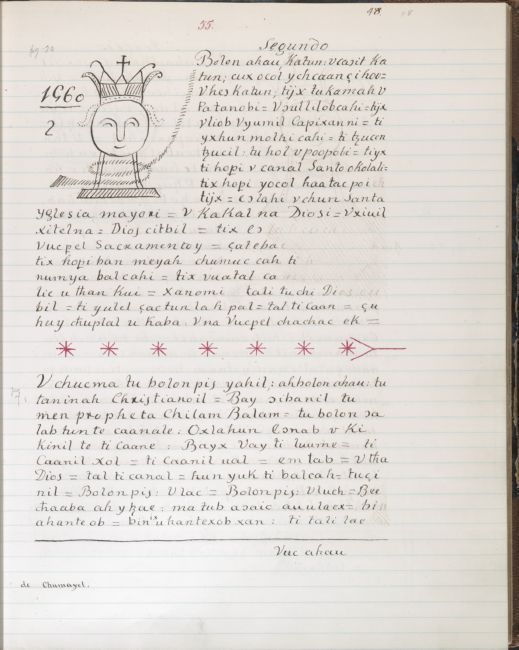 48
55.
Segundo
1560
2
Bolon ahau Katun: vcasit Ka
tun; cux ocol ychcaan çihoo=
Vhes Katun; tijx lukamah v
Patanobi = Vsullilobcahi = tijx
vliob Vyumil Capixanni = ti
yxhun molhi cahi = ti tzucen
tzucil: tu hol v poopobi = tiyx
ti hopi v canal Santo okolal:
tix hopi yocol haatac poi
tijx = colahi v chun Santa
yglesia mayori = V KaKal na Diosi = Vxiuil
xitelna = Dios citbil = tix
Vucpel Sacramentoy = çatebac
tix hopi ban meyah chumuc cah ti
numya balcahi = tix vuatal ca
lic u than Kui = xanomi tali tuchi Dios
bil = ti yulel çactun lah pal = tal ti Caan = çu
huy chuplal u Kaba: Vna Vucpel chachac ek =
V chucma tu bolonpis yahil; ahbolon ahau: tu
taninah Christianoil = Bay sibanil tu
men propheta Chilam Balam = tu bolon sa
lab tun te caanale: Oxlahun v Ki
Kinil te ti Caane: Bayx Vay ti luume = ti
Caanil xol = ti Caanil ual = em tab = V tha
Dios = tal ti canal = hun yuk ti balcah = tuçi
nil = Bolonpis: Vlac = Bolonpis: Vluch = Bee
chaaba ah = ma tub asaic auulaex = bin
ahanteob = bin ix uhantexob xan: ti tali lae
Vuc ahau
de Chumayel.